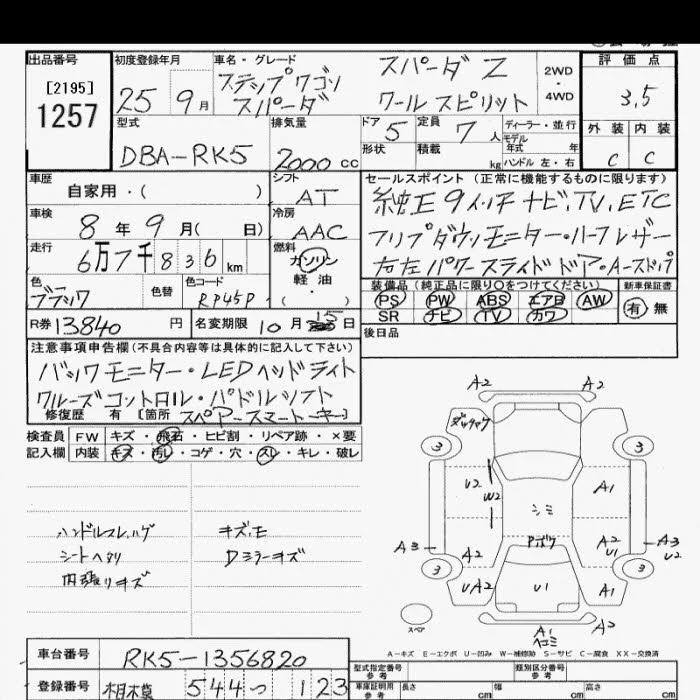 出品番号
[2195]
1257
初度登録年月
25 9月
車名・グレード
ステップワゴン スパーダ Z
スパーダ クールスピリット
2WD
4WD
評価点
3.5
外装 内装
C C
型式
DBA-RK5
排気量
2000 cc
ドア 5
定員 7人
ディーラー・並行
モデル
年式 年
形状
積載 kg
ハンドル 左・右
車歴
自家用・( )
シフト
AT
セールスポイント (正常に機能するものに限ります)
純正9インチナビ、TV、ETC
フリップダウンモニター・ハーフレザー
右左パワースライドドア・Aーストップ
車検
8年9月( 日)
冷房
AAC
走行
6万7千836km
燃料
ガソリン
軽油
( ・ )
色
ブラック
色替
色コード
RP45P
装備品(純正品に限り○をつけてください)
新車保証書
PS PW ABS エアB AW
SR ナビ TV カワ
有 無
R券 13840 円
名変期限 10月15日
後日品
注意事項申告欄(不具合内容等は具体的に記入して下さい)
バックモニター・LEDヘッドライト
クルーズコントロル・パドルシフト
修復歴 有 [箇所 スペアースマートーキー]
検査員
記入欄
FW キズ・飛石・ヒビ割・リペア跡・×要
内装 キズ・汚レ・コゲ・穴・スレ・キレ・破レ
ハンドルスレ,ハゲ
シートヘタリ
内張りキズ
キズ,モ
Dミラーキズ
A2 A2
3 3
U2
W2
A1
シミ
Pボケ
A3
A2
A2
U1
A3
U2
3 3
UA2
U1
A1
スペア
A1
ヘコミ
A-キズ E-エクボ U-凹み W-補修跡 S-サビ C-腐食 XX-交換済
車台番号
RK5-1356820
登録番号
相模 544 つ 123
型式指定番号
参考
類別区分番号
参考
車庫証明用
参考
長さ cm
幅 cm
高さ cm